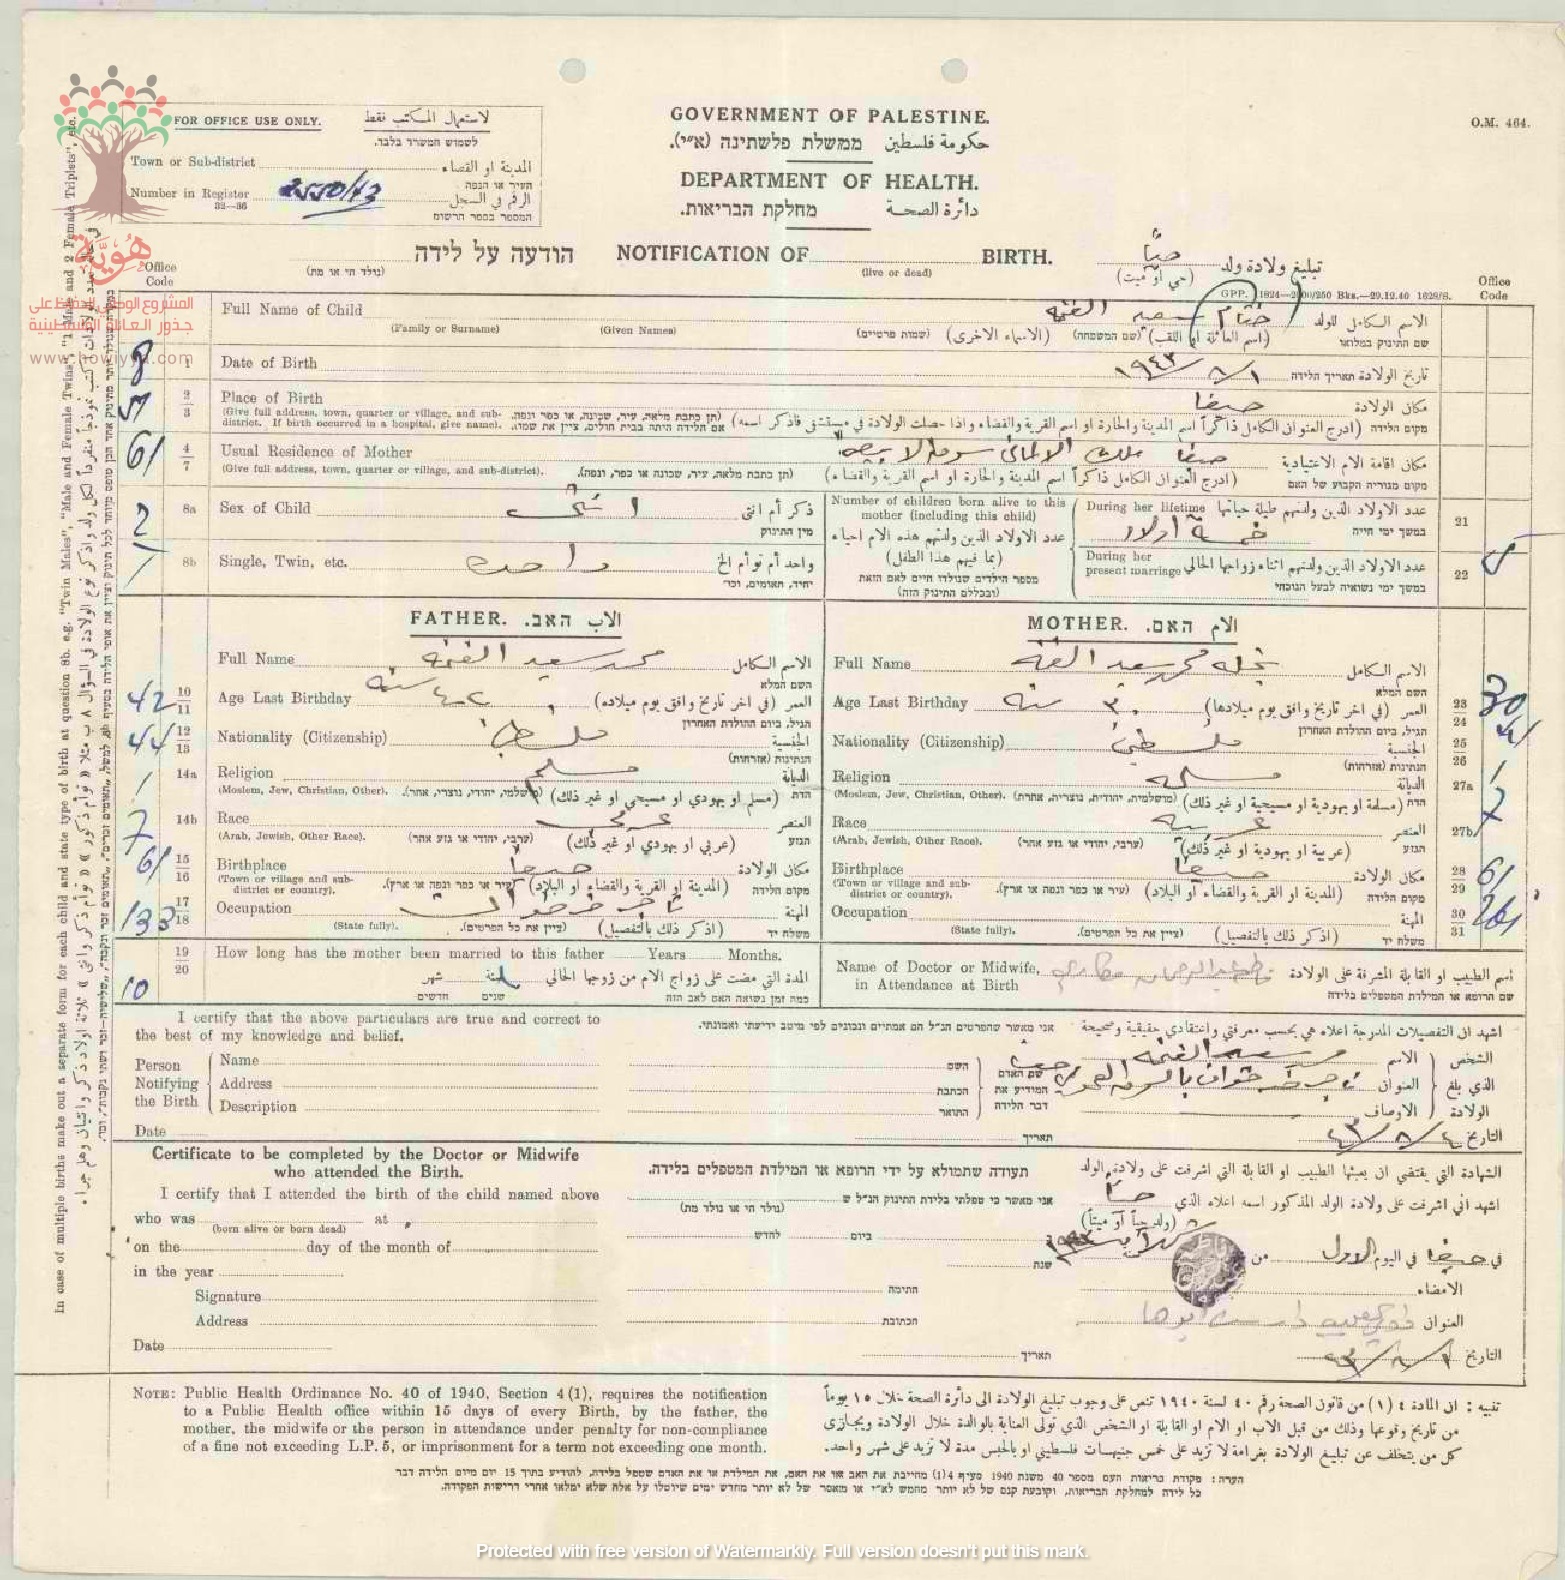 O.M. 464.
GOVERNMENT OF PALESTINE.
حكومة فلسطين ממשלת פלשתינה (א״י).
DEPARTMENT OF HEALTH.
دائرة الصحة מחלקת הבריאות.
FOR OFFICE USE ONLY. لاستعمال المكتب فقط
לשמוש המשרד בלבד.
Town or Sub-district المدينة او القضاء
העיר או הנפה
Number in Register 2550/43 الرقم في السجل
32—36 המספר בספר הרשום
هُوِيَّة
المشروع الوطني للحفاظ على
جذور العائلة الفلسطينية
www.howiyya.com
הודעה על לידה NOTIFICATION OF BIRTH. تبليغ ولادة ولد حياً
(נולד חי או מת) (live or dead) (حي او ميت)
Office Code Office Code
GPP. 1824—2000/250 Bks.—29.12.40 1629/S.
Full Name of Child ختام سعيد الاسم الكامل للولد
(Family or Surname) (Given Names) (שמות פרטיים) (الاسماء الاخرى) (שם המשפחה) (اسم العائلة او اللقب) שם התינוק במלואו
8 1 Date of Birth ١٩٤٣/٨/١ تاريخ الولادة תאריך הלידה
51 2 3 Place of Birth حيفا مكان الولادة
(Give full address, town, quarter or village, and sub-district. If birth occurred in a hospital, give name). (תן כתבת מלאה, עיר, שכונה, או כפר ונפה. אם הלידה היתה בבית חולים, ציין את שמו). (ادرج العنوان الكامل ذاكراً اسم المدينة والحارة او اسم القرية والقضاء واذا حصلت الولادة في مستشفى فاذكر اسمه) מקום הלידה
61 4 7 Usual Residence of Mother حيفا مكان اقامة الام الاعتيادية
(Give full address, town, quarter or village, and sub-district). (תן כתבת מלאה, עיר, שכונה או כפר, ונפה). (ادرج العنوان الكامل ذاكراً اسم المدينة والحارة او اسم القرية والقضاء) מקום מגוריה הקבוע של האם
2 8a Sex of Child انثى ذكر أم انثى
מין התינוק
1 8b Single, Twin, etc. واحدة واحد أم توأم الخ
יחיד, תאומים, וכד׳
Number of children born alive to this mother (including this child)
عدد الاولاد الذين ولدتهم هذه الام احياء
(بما فيهم هذا الطفل)
מספר הילדים שנולדו חיים לאם הזאת
(ובכללם התינוק הזה)
During her lifetime عدد الاولاد الذين ولدتهم طيلة حياتها 21
خمسة اولاد במשך ימי חייה
During her present marriage عدد الاولاد الذين ولدتهم اثناء زواجها الحالي 22 5
במשך ימי נשואיה לבעל הנוכחי
FATHER. الاب האב.
Full Name محمد سعيد الاسم الكامل
השם המלא
42 10 11 Age Last Birthday ٤٢ سنة العمر (في اخر تاريخ وافق يوم ميلاده)
הגיל, ביום ההולדת האחרון
44 12 13 Nationality (Citizenship) فلسطيني الجنسية
הנתינות (אזרחות)
1 14a Religion مسلم الديانة
(Moslem, Jew, Christian, Other). (מושלמי, יהודי, נוצרי, אחר). (مسلم او يهودي او مسيحي او غير ذلك) הדת
7 14b Race عربي العنصر
(Arab, Jewish, Other Race). (ערבי, יהודי או גזע אחר) (عربي او يهودي او غير ذلك) הגזע
61 15 16 Birthplace حيفا مكان الولادة
(Town or village and sub-district or country). (עיר או כפר ונפה או ארץ). (المدينة او القرية والقضاء او البلاد) מקום הלידה
133 17 18 Occupation تاجر خرضوات المهنة
(State fully). (ציין את כל הפרטים). (اذكر ذلك بالتفصيل) משלח יד
MOTHER. الام האם.
Full Name محمد سعيد الاسم الكامل
השם המלא
Age Last Birthday ٣٠ سنة العمر (في اخر تاريخ وافق يوم ميلادها) 23 24 30
הגיל, ביום ההולדת האחרון
Nationality (Citizenship) فلسطينية الجنسية 25 26 44
הנתינות (אזרחות)
Religion مسلمه الديانة 27a 1
(Moslem, Jew, Christian, Other). (מושלמית, יהודית, נוצריה, אחרת) (مسلمة او يهودية او مسيحية او غير ذلك) הדת
Race عربية العنصر 27b 7
(Arab, Jewish, Other Race). (ערבי, יהודי או גזע אחר) (عربية او يهودية او غير ذلك) הגזע
Birthplace حيفا مكان الولادة 28 29 61
(Town or village and sub-district or country). (עיר או כפר ונפה או ארץ). (المدينة او القرية والقضاء او البلاد) מקום הלידה
Occupation المهنة 30 31 261
(State fully). (ציין את כל הפרטים). (اذكر ذلك بالتفصيل) משלח יד
19 20 How long has the mother been married to this father Years Months.
10 المدة التي مضت على زواج الام من زوجها الحالي سنة شهر
כמה זמן נשואה האם לאב הזה שנים חדשים
Name of Doctor or Midwife, in Attendance at Birth اسم الطبيب او القابلة المشرفة على الولادة
שם הרופא או המילדת המטפלים בלידה
I certify that the above particulars are true and correct to the best of my knowledge and belief.
אני מאשר שהפרטים הנ״ל הם אמתיים ונכונים לפי מיטב ידיעתי ואמונתי.
اشهد ان التفصيلات المدرجة اعلاه هي بحسب معرفتي واعتقادي حقيقية وصحيحة
Person Notifying the Birth
Name השם
Address הכתבת
Description התואר
שם האדם המודיע את דבר הלידה
الشخص الذي بلغ الولادة
الاسم محمد سعيد
العنوان تاجر خرضوات بالسوق
الاوصاف
Date תאריך التاريخ ٤٣/٨/٤
Certificate to be completed by the Doctor or Midwife who attended the Birth.
תעודה שתמולא על ידי הרופא או המילדת המטפלים בלידה.
الشهادة التي يقتضي ان يعبئها الطبيب او القابلة التي اشرفت على ولادة الولد
I certify that I attended the birth of the child named above
who was at
(born alive or born dead)
on the day of the month of
in the year
Signature
Address
Date
אני מאשר כי טפלתי בלידת התינוק הנ״ל ש
(נולד חי או נולד מת)
ביום לחדש
שנת
החתימה
הכתובת
תאריך
اشهد أني اشرفت على ولادة الولد المذكور اسمه اعلاه الذي حياً
(ولد حياً أو ميتاً)
في حيفا في اليوم الاول من
الامضاء
العنوان
التاريخ ٤٣/٨/٢
NOTE: Public Health Ordinance No. 40 of 1940, Section 4 (1), requires the notification
to a Public Health office within 15 days of every Birth, by the father, the
mother, the midwife or the person in attendance under penalty for non-compliance
of a fine not exceeding L.P. 5, or imprisonment for a term not exceeding one month.
تنبيه : ان المادة ٤ (١) من قانون الصحة رقم ٤٠ لسنة ١٩٤٠ تنص على وجوب تبليغ الولادة الى دائرة الصحة خلال ١٥ يوماً
من تاريخ وقوعها وذلك من قبل الاب او الام او القابلة او الشخص الذي تولى العناية بالوالدة خلال الولادة ويجازى
كل من يتخلف عن تبليغ الولادة بغرامة لا تزيد على خمس جنيهات فلسطيني او بالحبس مدة لا تزيد على شهر واحد.
הערה: פקודת בריאות העם מספר 40 משנת 1940 סעיף 4(1) מחייבת את האב או את האם, את המילדת או את האדם שטפל בלידה, להודיע בתוך 15 יום מיום הלידה דבר
כל לידה למחלקת הבריאות, וקובעת קנס של לא יותר מחמש לא״י או מאסר של לא יותר מחדש ימים שיוטלו על אלה שלא ימלאו אחרי דרישות הפקודה.
In case of multiple births make out a separate form for each child and state type of birth at question 8b. e.g. "Twin Males" "Male and Female Twins", "1 Male and 2 Female Triplets", etc.
Protected with free version of Watermarkly. Full version doesn't put this mark.